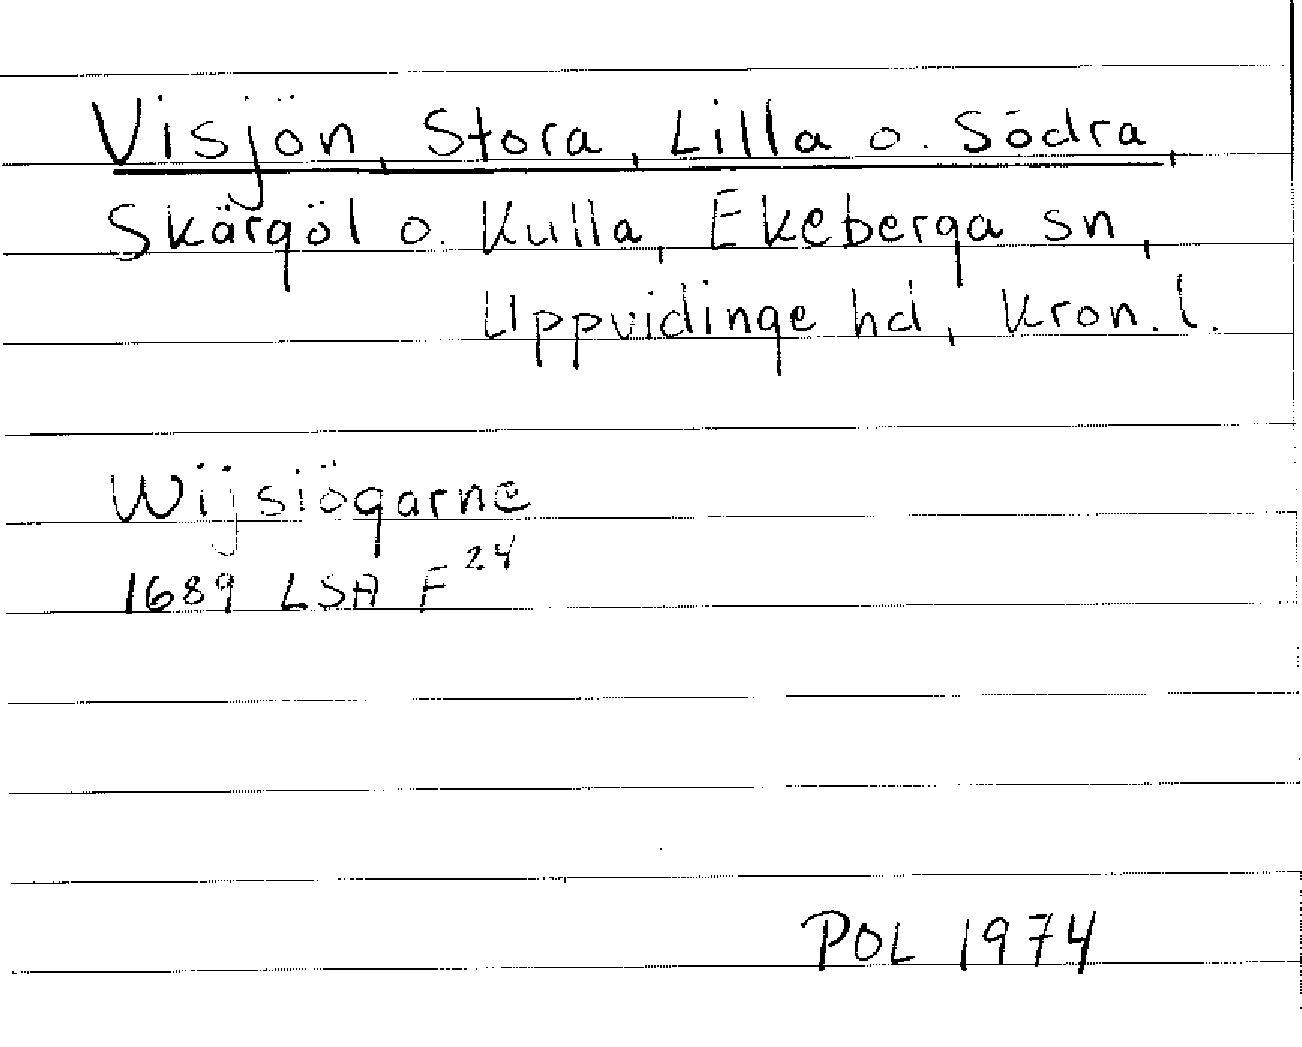 Visjön, Stora, Lilla o. Södra,
Skärgöl o. Kulla, Ekeberga sn,
Uppvidinge hd, Kron. l.
Wijsiögarne
1689 LSA F 24
POL 1974